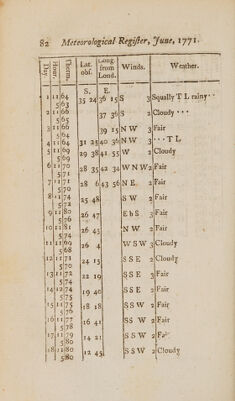 82 Meteorological Register, June, 1771.
Day. Hour. Therm. Lat. obs. Long. from Lond. Winds. Weather.
S. E.
1 11 64 35 24 36 15 S 3 Squally T L rainy
5 63
2 11 66 37 36 S 2 Cloudy
5 64
3 11 66 39 15 N W 3 Fair
5 64
4 11 64 31 25 40 36 N W 3 T L
5 69
5 11 69 29 38 41 55 W 2 Cloudy
5 69
6 11 70 28 35 42 34 W N W 2 Fair
5 71
7 11 71 28 6 43 56 N E 2 Fair
5 70
8 11 74 25 48 S W 2 Fair
5 72
9 11 80 26 47 E b S 3 Fair
5 76
10 11 81 26 45 N W 2 Fair
5 74
11 11 69 26 4 W S W 3 Cloudy
5 68
12 11 71 24 13 S S E 2 Cloudy
5 70
13 11 72 22 19 S S E 3 Fair
5 74
14 12 74 19 40 S S E 2 Fair
5 75
15 11 75 18 18 S S W 2 Fair
5 76
16 11 77 16 41 S S W 2 Fair
5 78
17 11 79 14 21 S S W 2 Fair
5 80
18 11 80 12 45 S S W 2 Cloudy
5 80